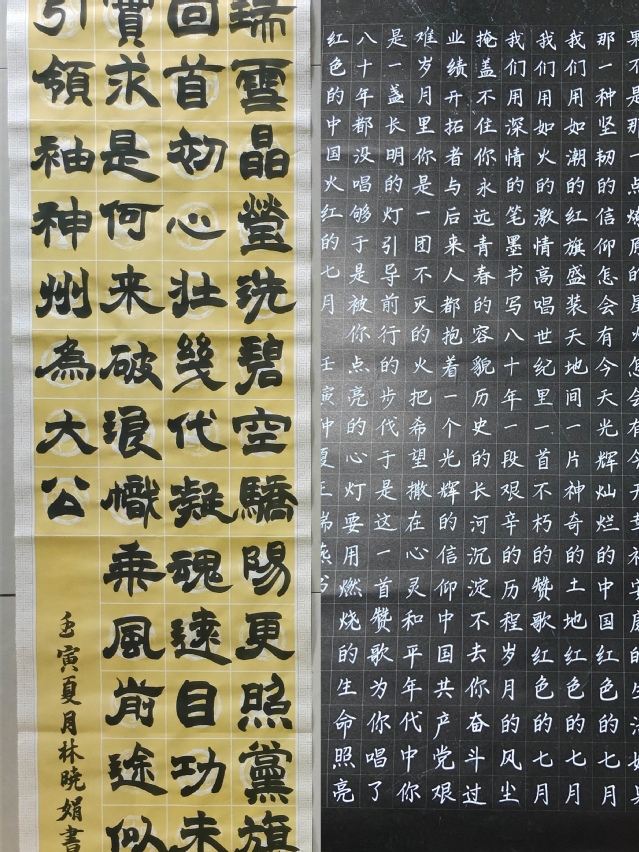 果不是那一点燎原的星火怎会有今天
那一种坚韧的信仰怎会有今天光辉灿烂的中国红色的七月
我们用如潮的红旗盛装天地间一片神奇的土地红色的七月
我们用如火的激情高唱世纪里一首不朽的赞歌红色的七月
我们用深情的笔墨书写八十年一段艰辛的历程岁月的风尘
掩盖不住你永远青春的容貌历史的长河沉淀不去你奋斗过
业绩开拓者与后来人都抱着一个光辉的信仰中国共产党艰
难岁月里你是一团不灭的火把希望撒在心灵和平年代中你
是一盏长明的灯引导前行的步伐于是这一首赞歌为你唱了
八十年都没唱够于是被你点亮的心灯要用燃烧的生命照亮
红色的中国火红的七月
壬寅仲夏王瑞燕书
瑞雪晶瑩洗碧空驕陽更照黨旗
回首初心壯幾代凝魂遠目功未
實求是何來破浪幟乘風前途似
引領袖神州為大公
壬寅夏月林曉娟書